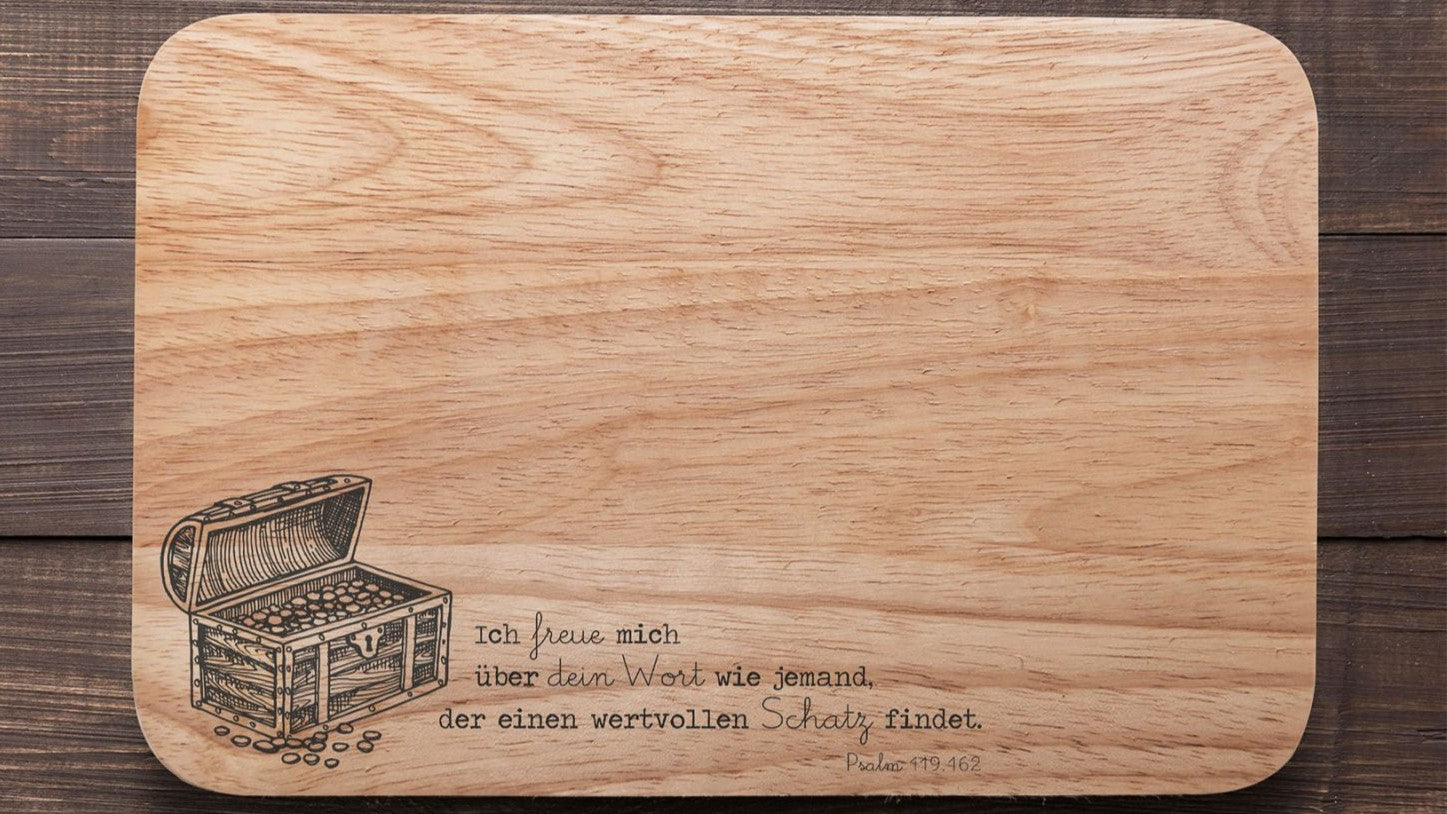 Ich freue mich
über dein Wort wie jemand,
der einen wertvollen Schatz findet.
Psalm 119,162